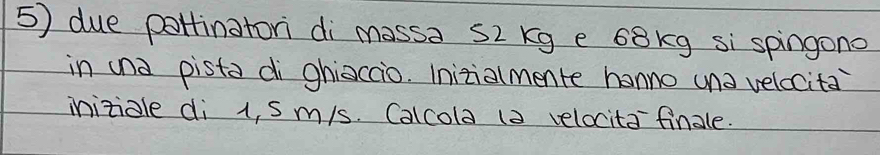 5) due pattinatori di massa 52 kg e 68kg si spingono
in una pista di ghiaccio. Inizialmente hanno una velocità
iniziale di 1,5 m/s. Calcola la velocità finale.